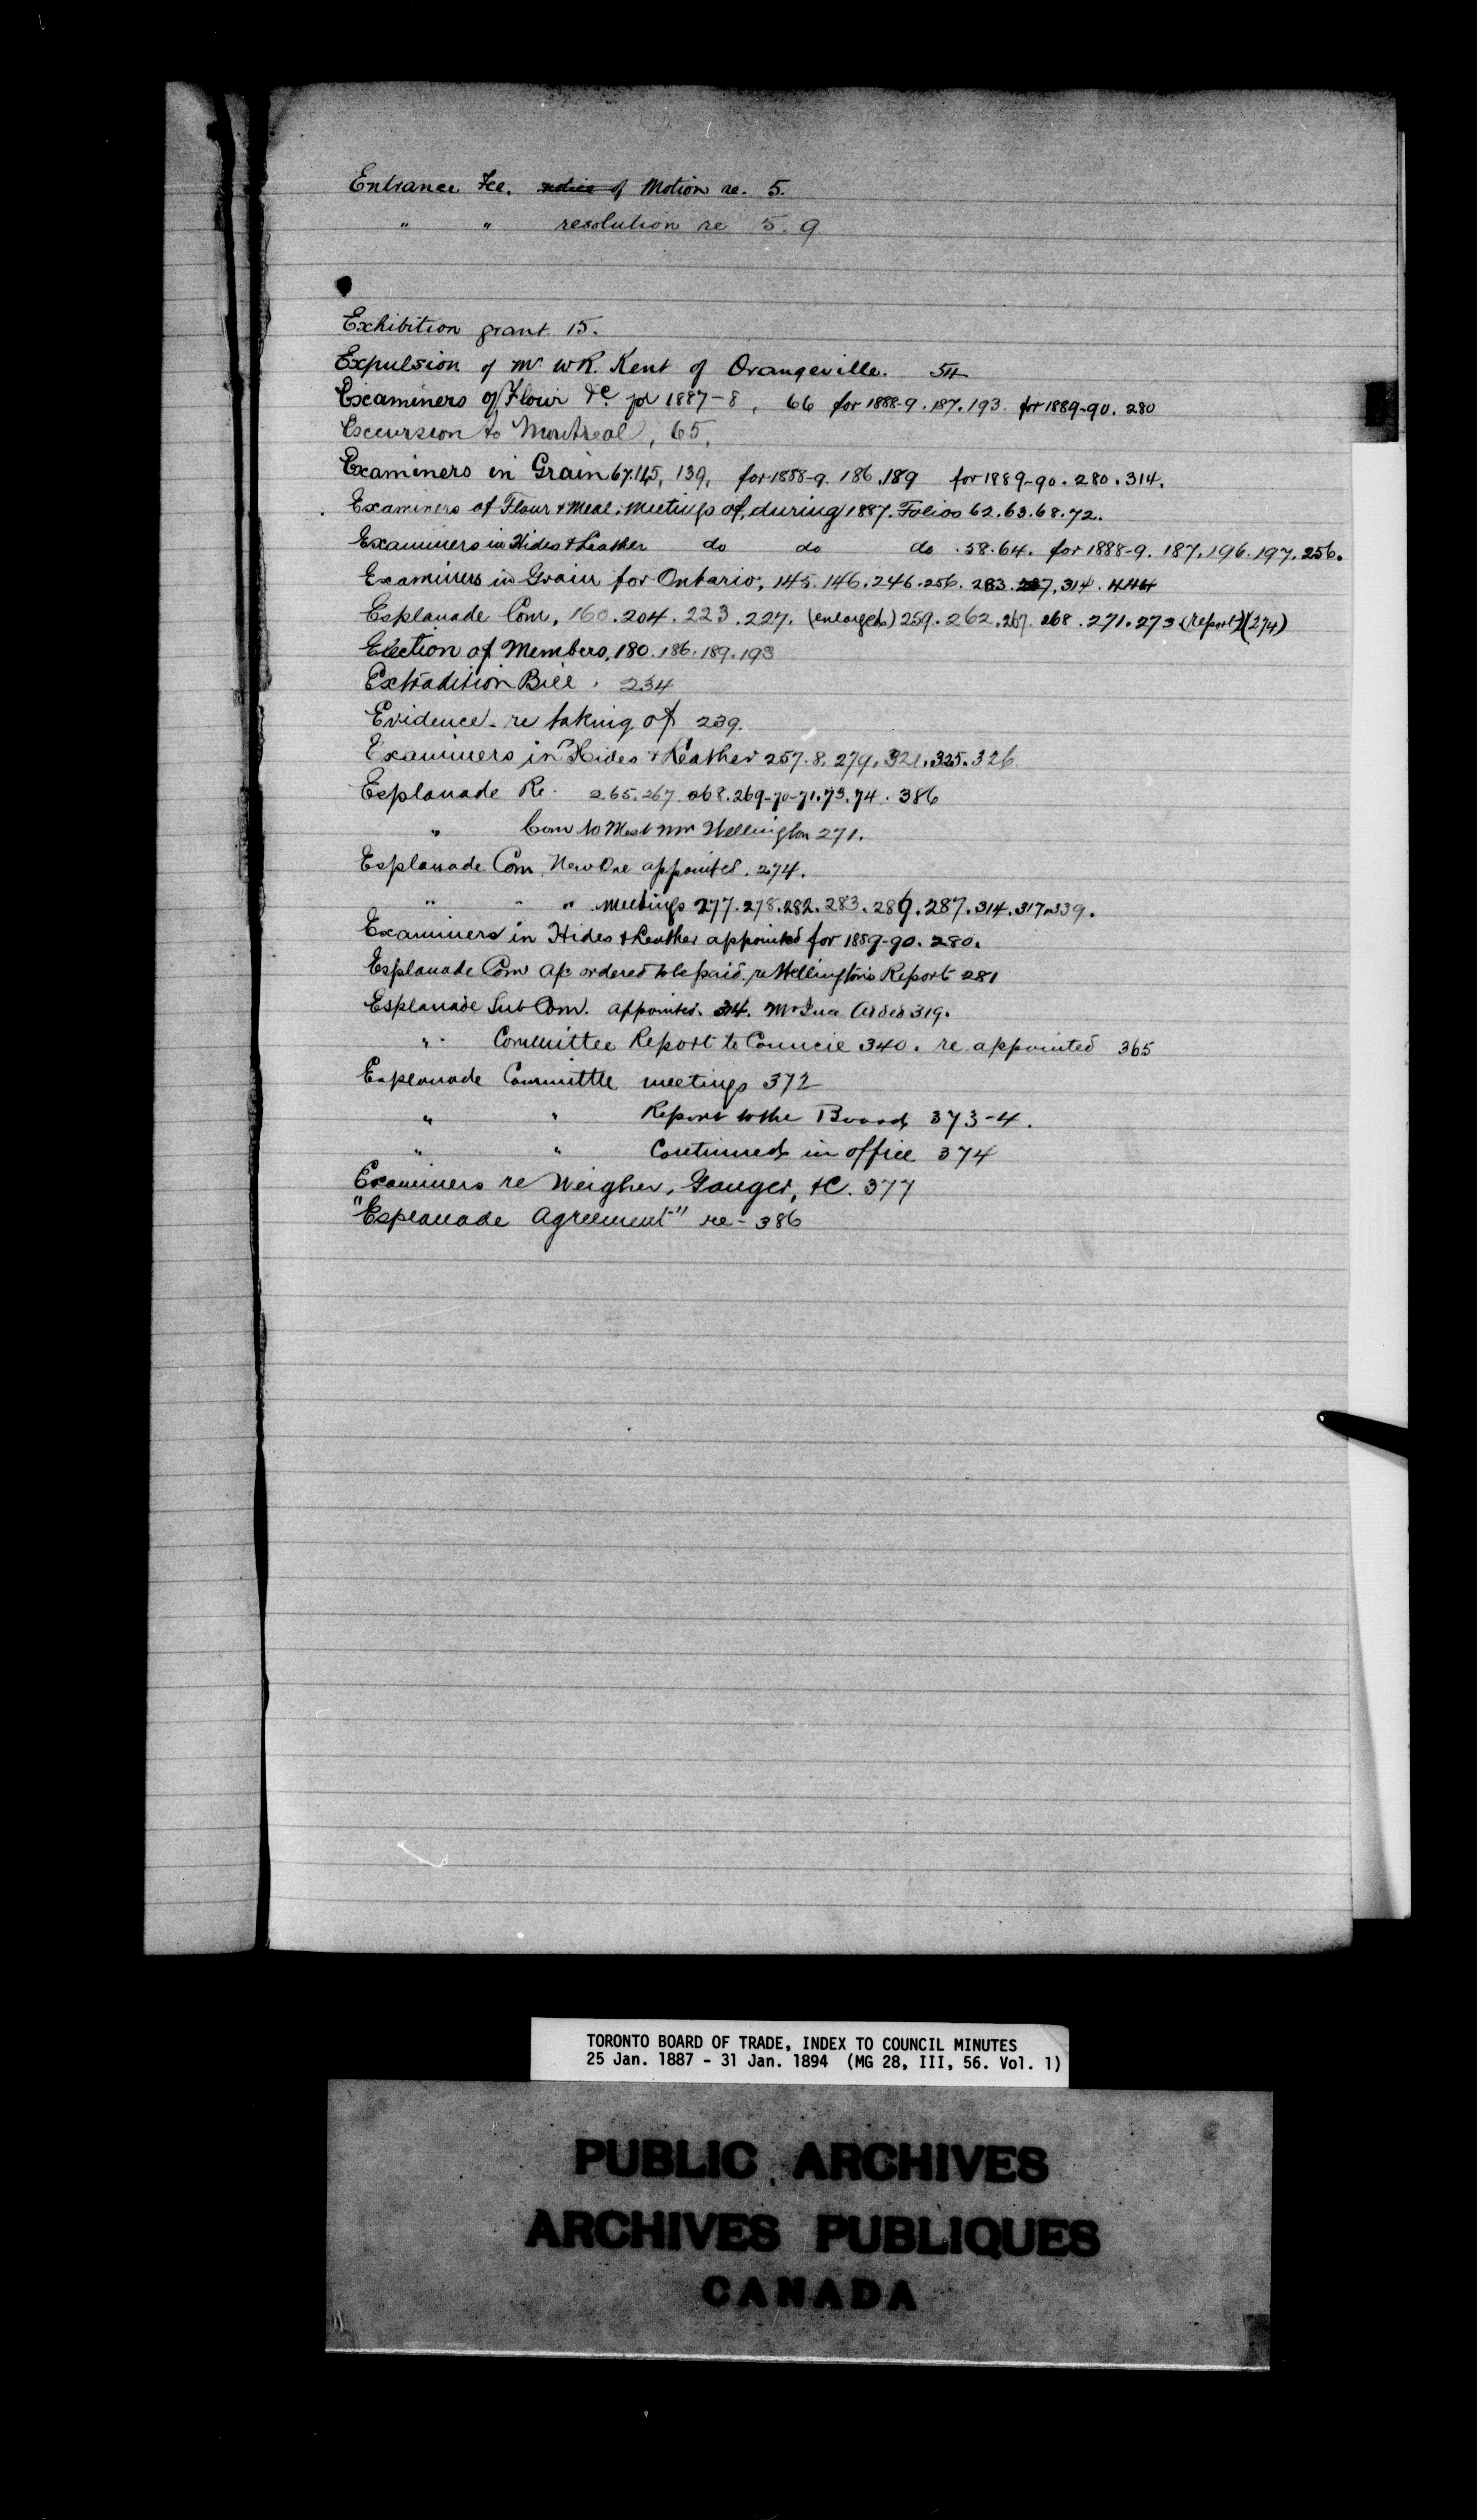 Entrance Fee. notice of Motion re. 5.
" " resolution re 5. 9
Exhibition grant. 15.
Expulsion of Mr W.R. Kent of Orangeville.
Examiners of Flour &c. for 1887-8, 66 for 1888-9. 187. 193. for 1889-90. 280
Excursion to Montreal, 65,
Examiners in Grain 67. 115, 139, for 1888-9. 186. 189 for 1889-90. 280. 314.
Examiners of Flour & Meal, Meetings of, during 1887. Folios 62. 63. 68. 72.
Examiners in Hides & Leather do do do. 58. 64. for 1888-9. 187. 196. 197. 256.
Examiners in Grain for Ontario, 145. 146. 246. 256. 283. 287. 314.
Esplanade Com, 160. 204. 223. 227. (enlarged) 259. 262. 267. 268. 271. 273. (report) (274)
Election of Members, 180. 186. 189. 193
Extradition Bill. 234
Evidence - re taking of 239.
Examiners in Hides & Leather 257. 8. 279. 321. 325. 326
Esplanade Re. 265. 267. 268. 269-70-71. 73. 74. 386
" Com to Meet Mr Wellington 271.
Esplanade Com. New One appointed. 274.
" " " meetings 277. 278. 282. 283. 286. 287. 314. 317. 339.
Examiners in Hides & Leather appointed for 1889-90. 280.
Esplanade Com a/c ordered to be paid. re Wellington's Report 281
Esplanade Sub Com. appointed. 314. Mr Ince added 319.
" Committee Report to Council 340. re appointed 365
Esplanade Committee meetings 372
" " Report to the Board 373-4.
" " Continued in office 374
Examiners re Weigher, Gauger, &c. 377
"Esplanade Agreement" re - 386
TORONTO BOARD OF TRADE, INDEX TO COUNCIL MINUTES
25 Jan. 1887 - 31 Jan. 1894 (MG 28, III, 56. Vol. 1)
PUBLIC ARCHIVES
ARCHIVES PUBLIQUES
CANADA